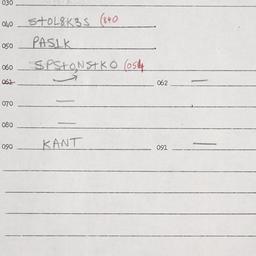 030
040 STOL8K3S (840
050 PASIK
060 SPSTONSTKO (054
061 062 —
070 —
080 —
090 KANT 091 —